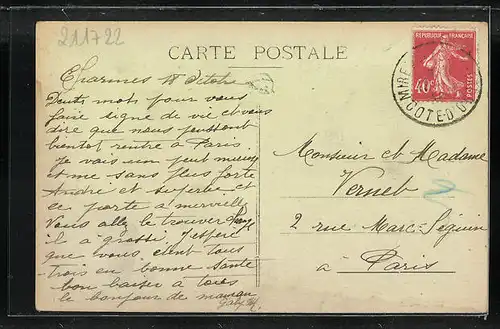 211722
CARTE POSTALE
REPUBLIQUE FRANÇAISE
40c
POSTES
MIRE
COTE D'O
Charmes 18 8bre
Deux mots pour vous
faire signe de vie et vous
dire que nous pensons
bientot rentre à Paris
Je vais un peut mieux
et me sans plus forte
André et superbe et
ce porte a merveille
Vous allez le trouver
il à grossi. J'espère
que vous etent tous
trois en bonne sante
bon baiser a tous
le bonjour de maman
Gaby
Monsieur et Madame
Vernet
2 rue Marc-Séguin
à Paris